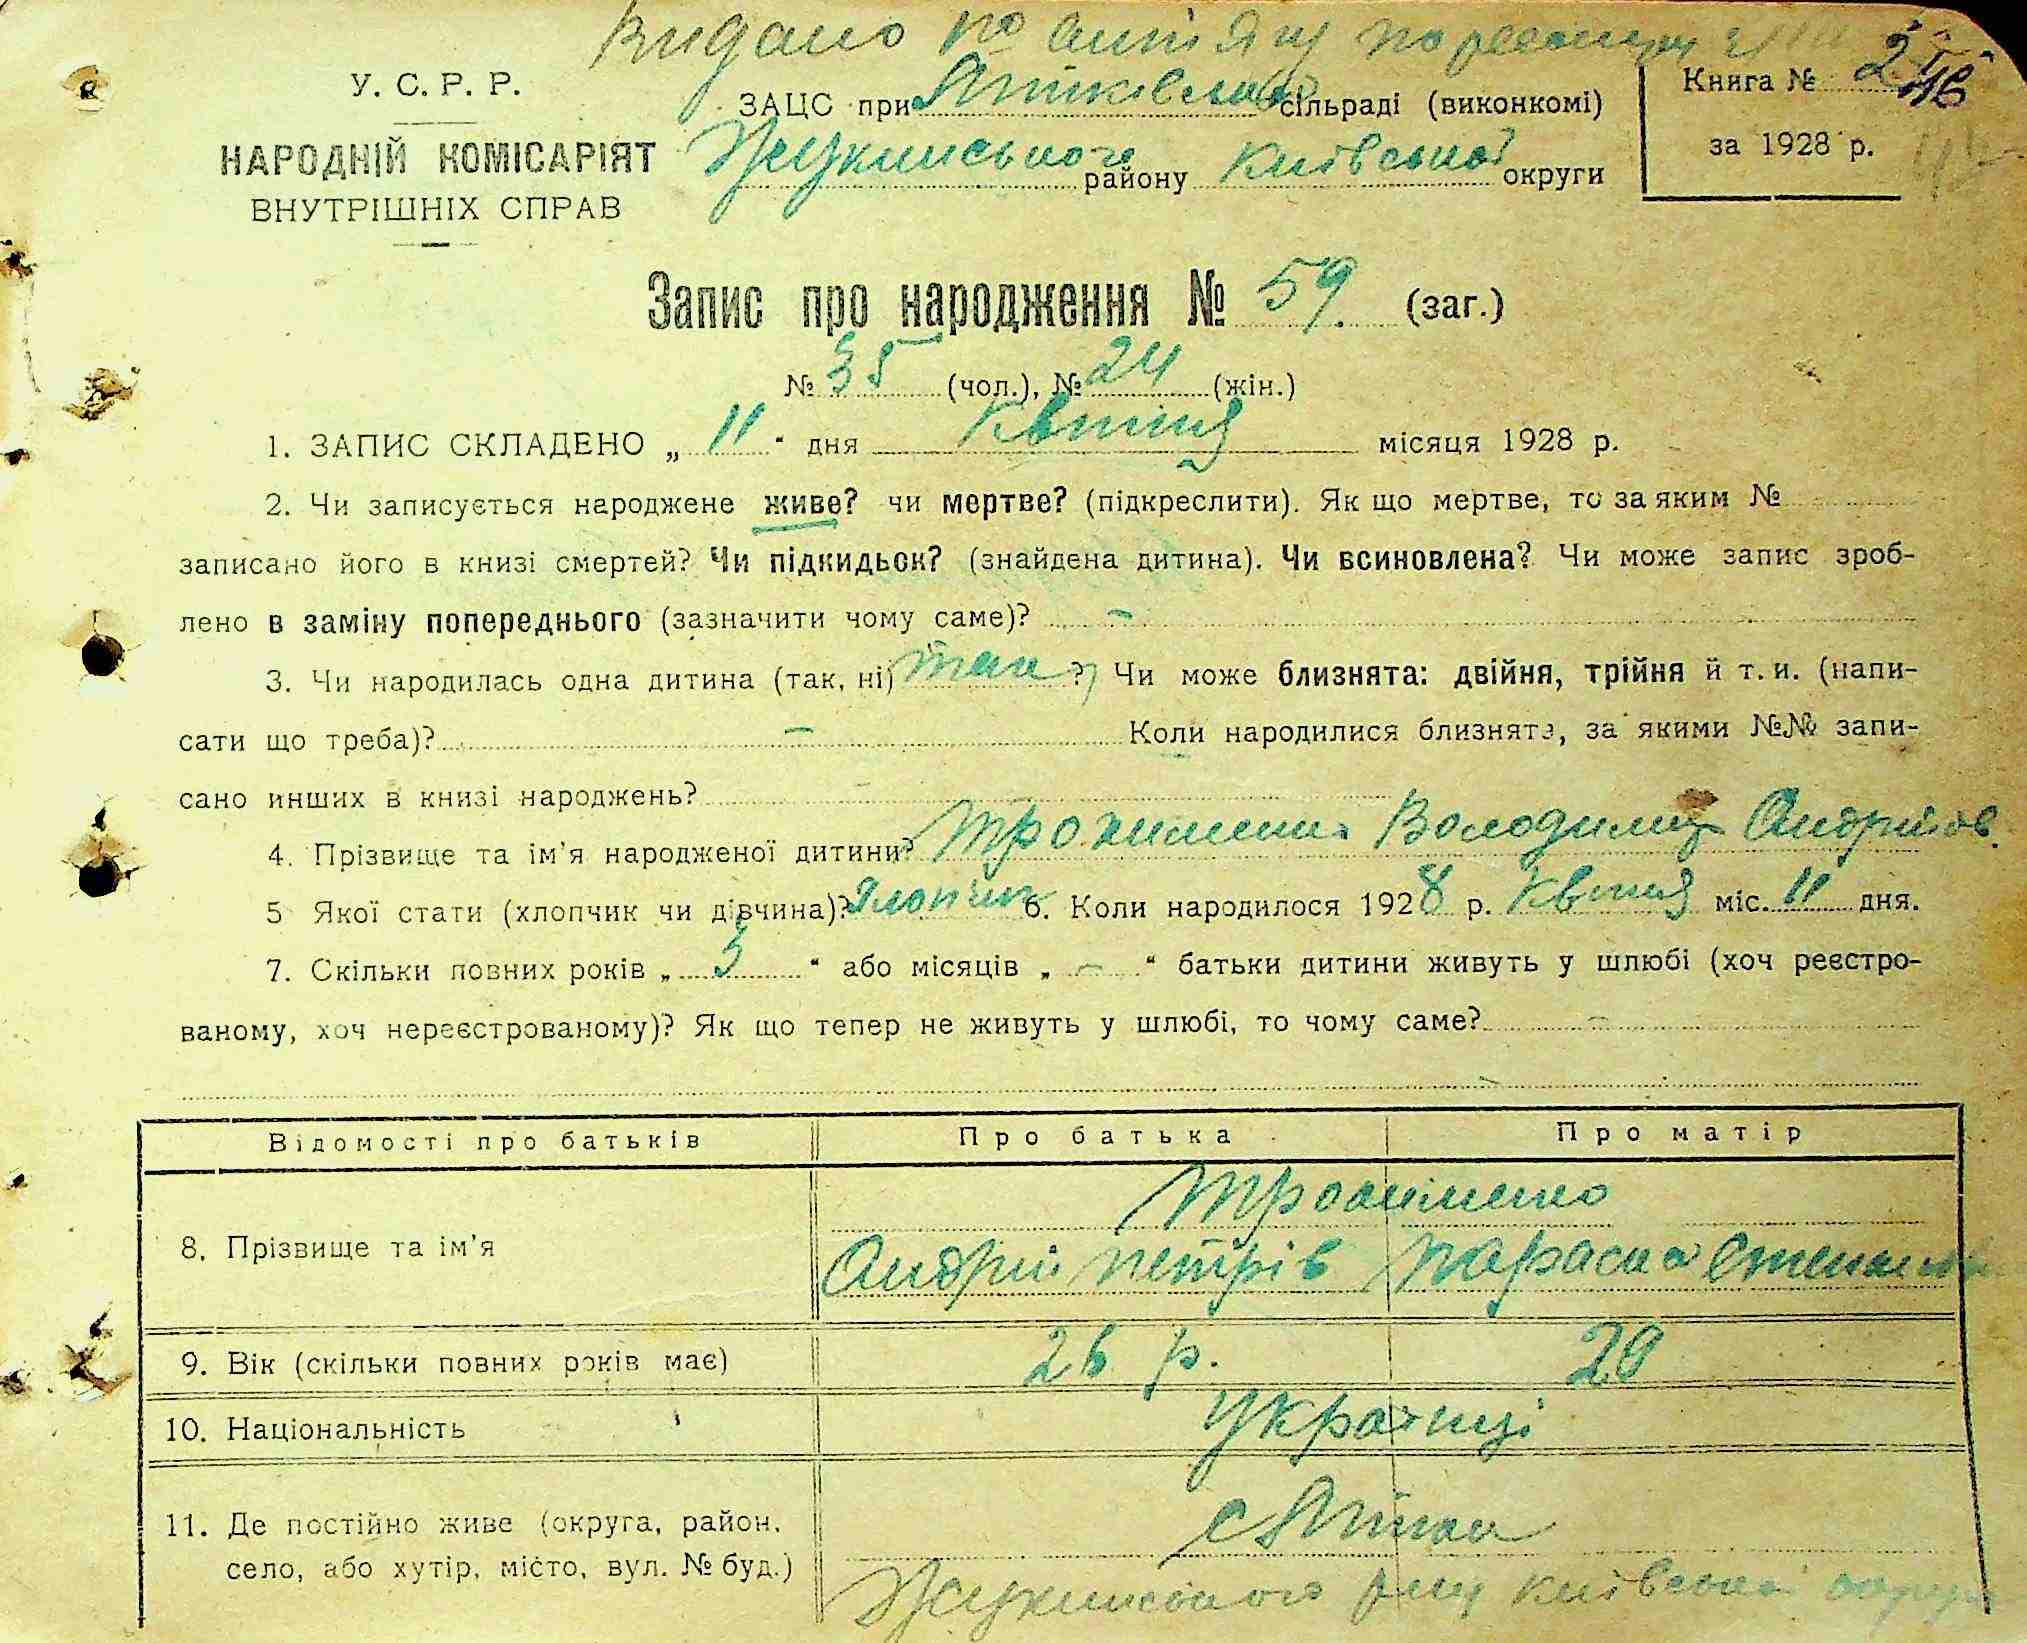 Видано по
У. С. Р. Р.
НАРОДНІЙ КОМІСАРІЯТ
ВНУТРІШНІХ СПРАВ
ЗАЦС при сільраді (виконкомі)
Жукинського району Київської округи
Книга № 2
за 1928 р.
Запис про народження № 59. (заг.)
№ 35 (чол.), № 24 (жін.)
1. ЗАПИС СКЛАДЕНО „ 11 “ дня Квітня місяця 1928 р.
2. Чи записується народжене живе? чи мертве? (підкреслити). Як що мертве, то за яким №
записано його в книзі смертей? Чи підкидьок? (знайдена дитина). Чи всиновлена? Чи може запис зроб-
лено в заміну попереднього (зазначити чому саме)? -
3. Чи народилась одна дитина (так, ні) так ? Чи може близнята: двійня, трійня й т. и. (напи-
сати що треба)? - Коли народилися близнята, за якими №№ запи-
сано инших в книзі народжень?
4. Прізвище та ім'я народженої дитини? Володимир Андріїов.
5 Якої стати (хлопчик чи дівчина)? Хлопчик 6. Коли народилося 1928 р. Квітня міс. 11 дня.
7. Скільки повних років „ 5 “ або місяців „ - “ батьки дитини живуть у шлюбі (хоч реєстро-
ваному, хоч нереєстрованому)? Як що тепер не живуть у шлюбі, то чому саме? -
Відомості про батьків Про батька Про матір
8. Прізвище та ім'я Трохименко
Андрій Петрів Параска
9. Вік (скільки повних років має) 26 р. 29
10. Національність Українці
11. Де постійно живе (округа, район, село, або хутір, місто, вул. № буд.) с
Жукинського р-ну Київської округи